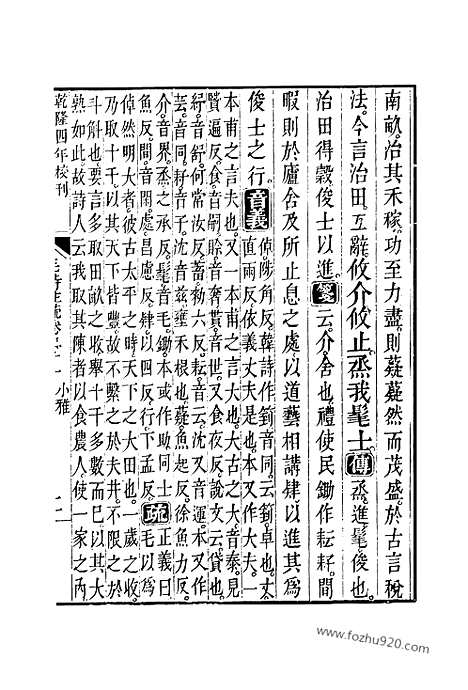 南畝。治其禾稼。功至力盡。則薿薿然而茂盛。於古言稅
法。今言治田。互辭。攸介攸止。烝我髦士。傳烝進。髦俊也。
治田得穀。俊士以進。箋云。介舍也。禮使民鋤作耘耔。間
暇則於廬舍及所止息之處。以道藝相講肄。以進其為
俊士之行。音義倬。陟角反。韓詩作箌。音同。云箌卓也。丈
直兩反。依義丈夫是也。本又作大夫。一
本甫之言夫也。又一本甫之言大也。大古之大音泰。見
賢遍反。食音嗣。賖音奢。貰音世。又食夜反。說文云。貸也。
紓音舒。何常汝反。蓄勑六反。耘音云。沈又音運。本又作
芸。音同。耔音子。沈音兹。壅禾根也。薿魚起反。徐魚力反。
介音界。烝之承反。髦音毛。鋤本或作助。同。士
魚反。間音閑。處昌慮反。肄以四反。行下孟反。疏正義曰
毛以為
倬然明大者。彼古太平之時。天下之大田也。一歲之收。
乃取十千。以其天下皆豐。故不繫之於夫井。不限之於
斗斛也。要言多取田畝之收。舉十千多數而已。以其大
熟如此。故詩人云。我取其陳者以食農人。使一家之內
乾隆四年校刊
小雅
www.fozhu920.com